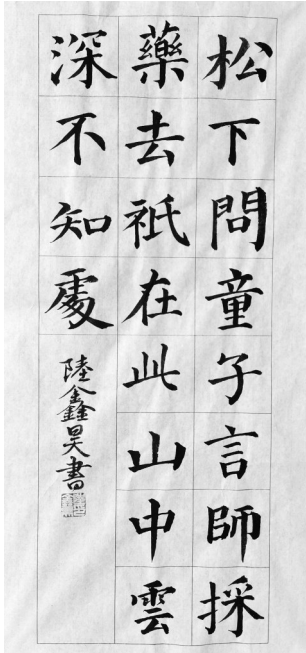 松下問童子言師採
藥去祇在此山中雲
深不知處
陸鑫昊書